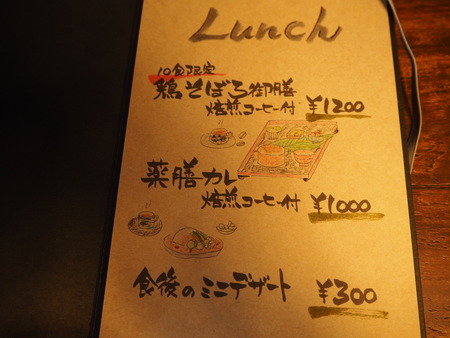 Lunch
10食限定
鶏そぼろ御膳
焙煎コーヒー付 ¥1200
薬膳カレー
焙煎コーヒー付 ¥1000
食後のミニデザート ¥300